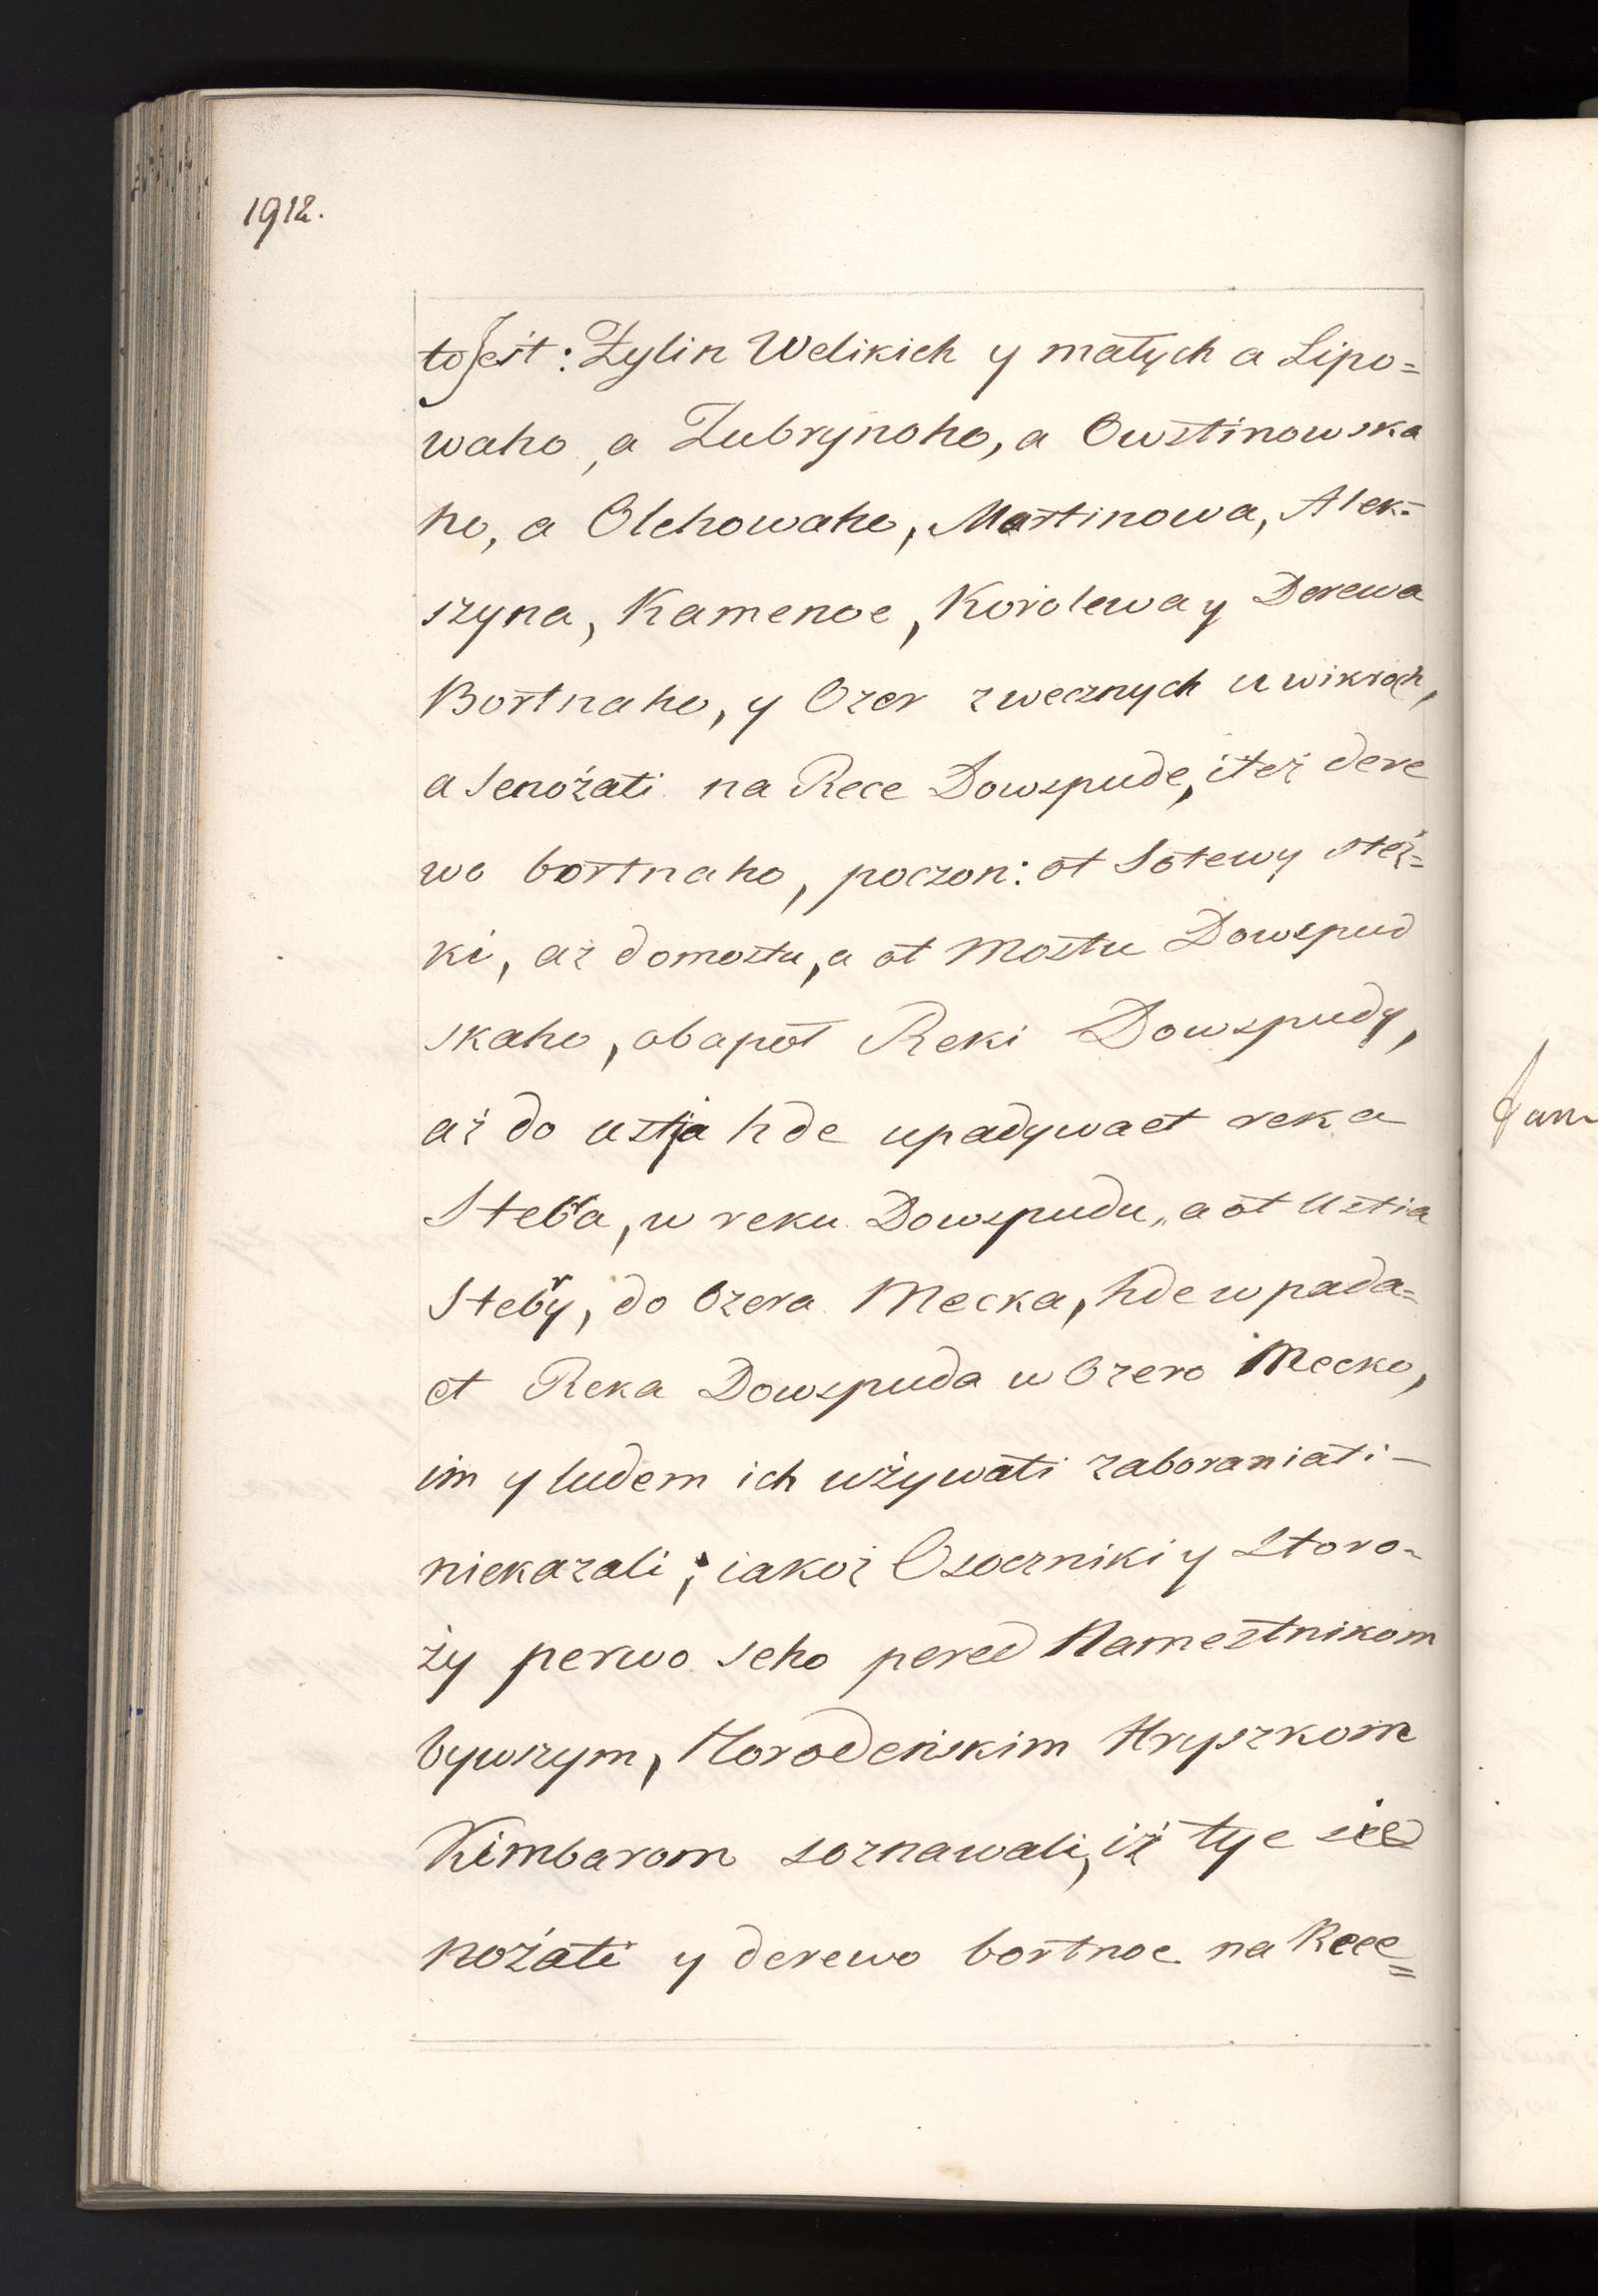 1912.
to jest: Żylin Welikich y małych a Lipo=
waho, a Zubrynoho, a Owstinowska
ho, a Olchowaho, Martinowa, Alek=
szyna, Kamenoe, Korolewa y Derewa
Bortnaho, y Ozer zwecznych u wikrach,
a Senożati na Rece Dowspude, iteż dere
wo bortnaho, poczon: ot Sotewy steż=
ki, aż do mostu, a ot Mostu Dowspud
skaho, obapoł Reki Dowspudy,
aż do ustja hde upadywaet reka
Stebra, w reku Dowspudu,, a ot Ustia
Stebry, do Ozera Mecka, hde wpada=
et Reka Dowspuda w Ozero Mecko,
im y ludem ich używati zaboraniati —
niekazali; iakoż Osoczniki y Storo=
ży perwo seho pered Namestnikom
bywszym, Horodeńskim Hryszkom
Kimbarom soznawali, iż tye sie
nożati y derewo bortnoe na Rece=